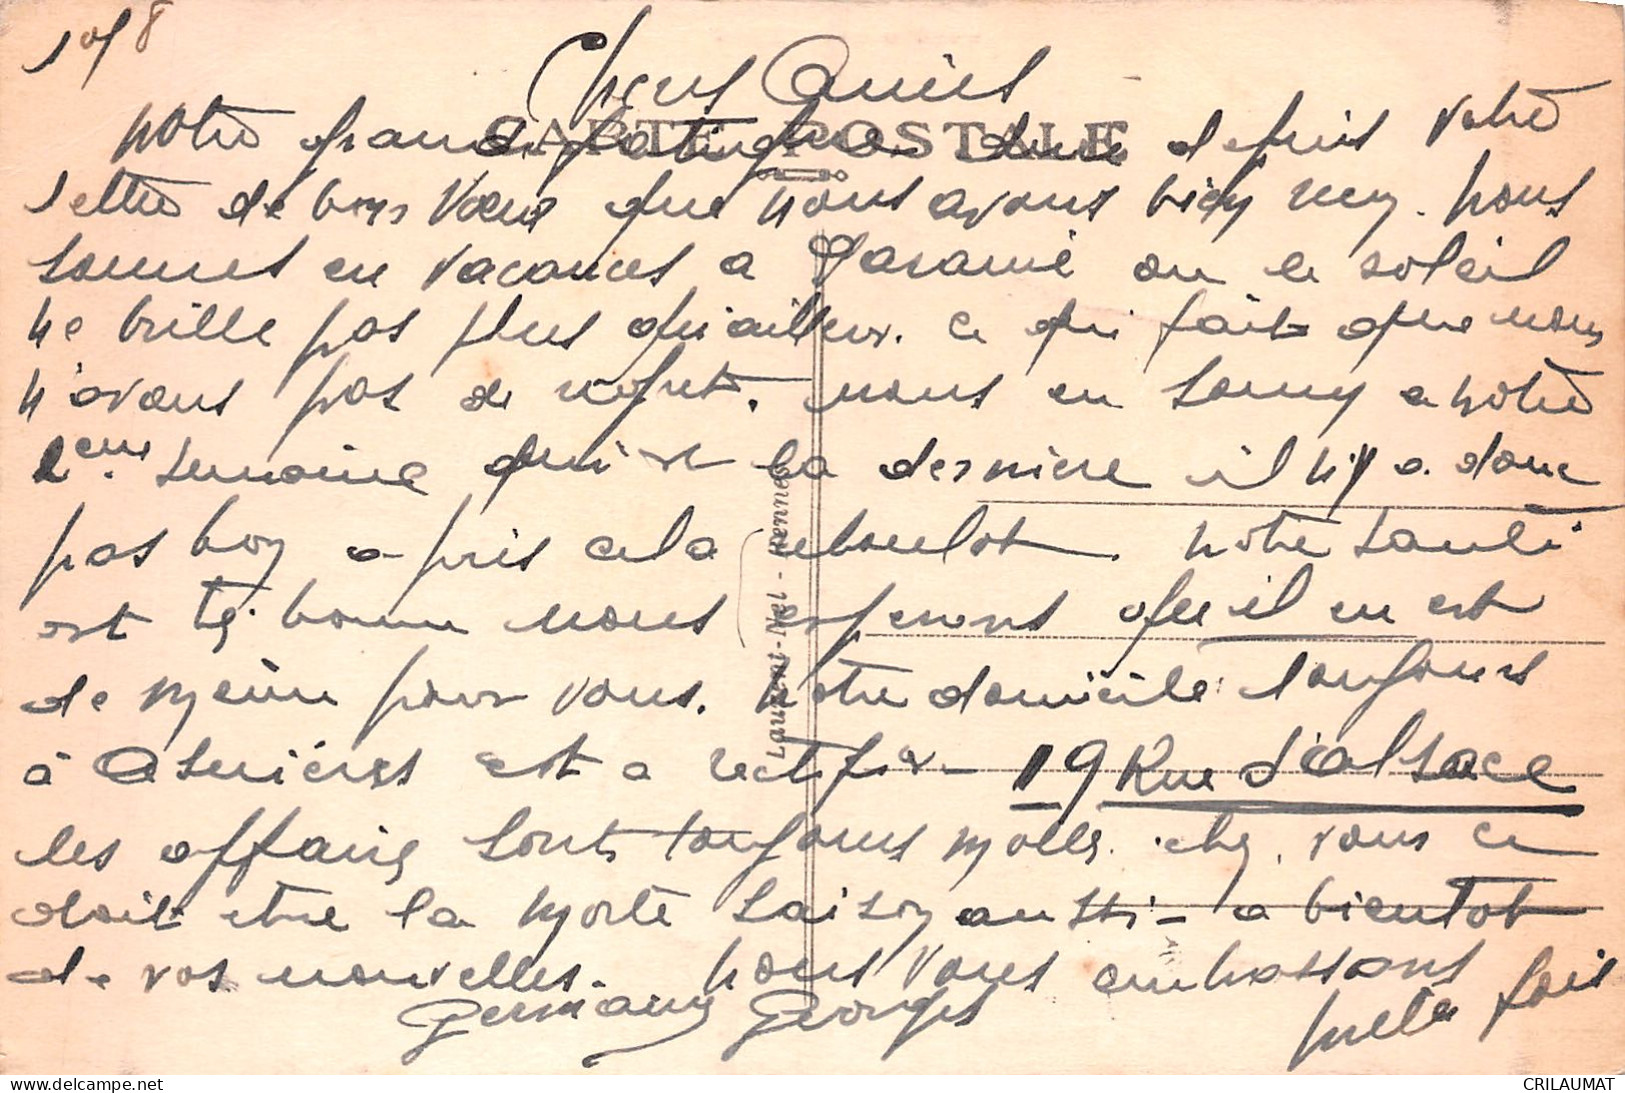 Chers Amis
CARTE POSTALE
Notre grande fatigue depuis votre
lettre de bons vœux que nous avons bien reçu. Nous
sommes en vacances a Paramé ou le soleil
ne brille pas plus qu'ailleurs. Ce qui fait que nous
n'avons pas de regret. nous en sommes a notre
2eme semaine qui est la dernière il n'y a donc
pas bon après cela absolut. Notre santé
est très bonne nous espérons qu'il en est
de même pour vous. Notre domicile toujours
à Asnières est a rectifier 19 Rue d'Alsace
les affaires sont toujours molles. chez vous ce
doit être la morte saison aussi - a bientot
de vos nouvelles. Nous vous embrassons
mille fois
Germaine Georges
Laurent-Nel - Rennes
CRILAUMAT